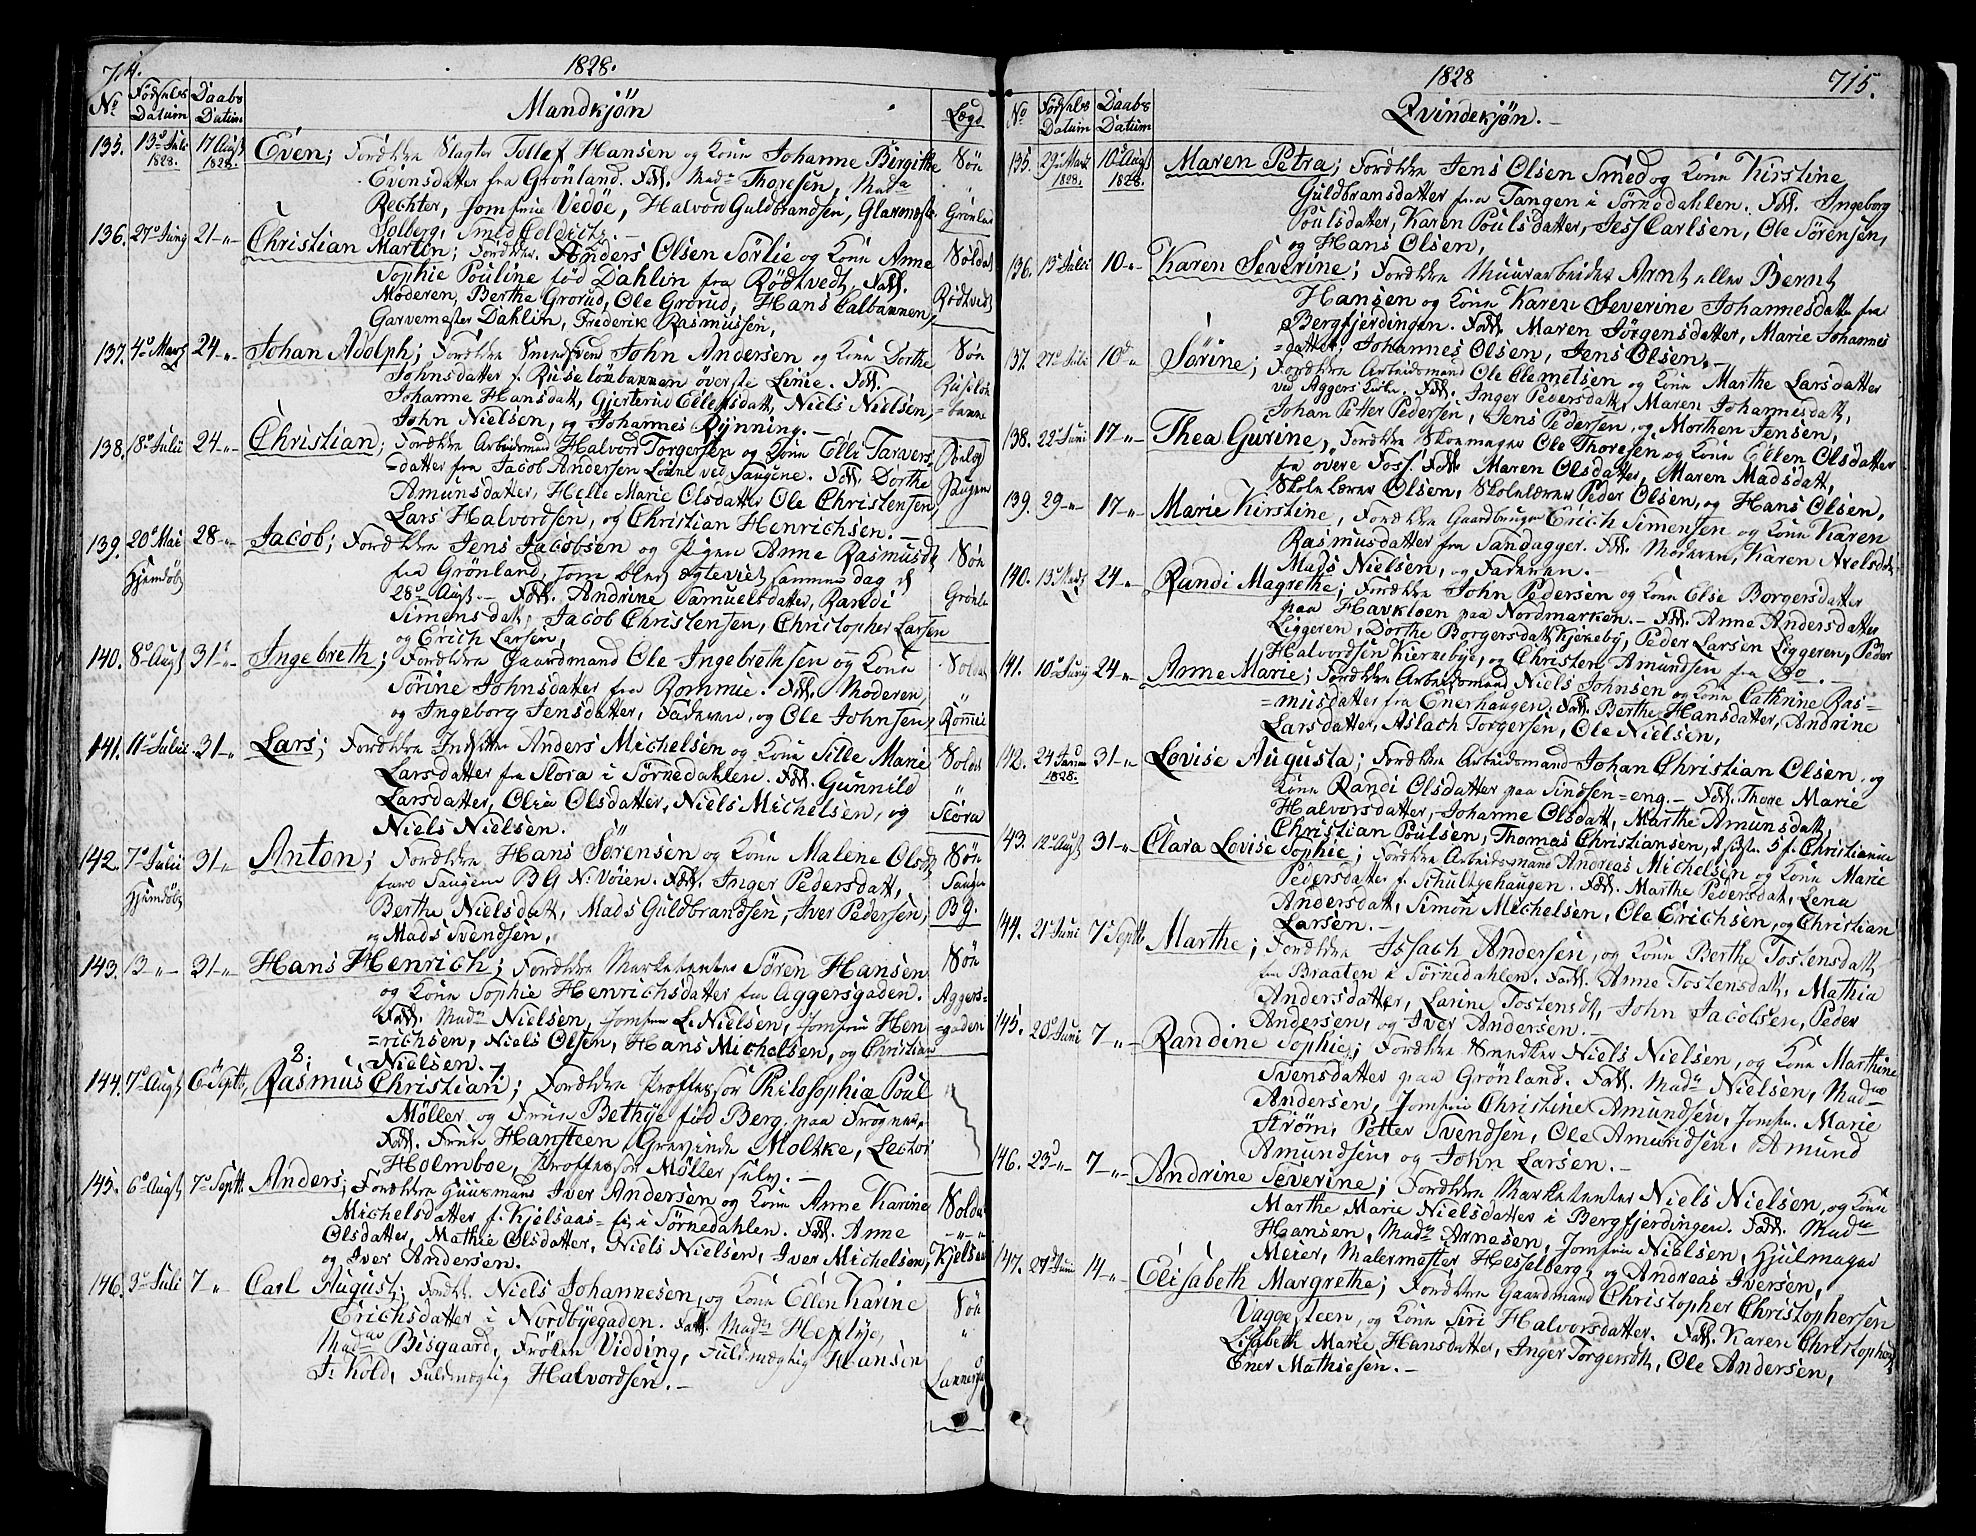 714.
1828.
No Fødsels Datum Daabs Datum Mandkjøn Lægd
135. 13de Juli 1828. 17 Augst 1828. Even; Forældre Slagter Tollef Hansen og Kone Johanne Birgitte Søe
Evensdatter fra Grønland. Fadd. Madm Thoresen, Mada
Rechter, Jomfrue Vedöe, Halvord Guldbrandsen, Glarmestr Grønland
Solberg, Smed
136. 27de Juny 21-"- Christian Martin; Forældre Anders Olsen Sörlie og Kone Anne Soldat
Sophie Pouline fød Dahlin fra Rödtvedt, Fadd.
Moderen, Berthe Grorud, Ole Grorud, Hans Calbannen, Rödtvedt
Garvemester Dahlin, Frederik Rasmussen,
137. 4de Marts 24-"- Johan Adolph; Forældre Smedsvend John Andersen og Kone Dorthe Søe
Johnsdatter f. Ruseløkbannen överste Linie. Fadd. Ruseløk
Johanne Hansdatt, Gjerterud Ellefsdatt, Niels Nielsen, =banne
John Nielsen, og Johannes Rynning.-
138. 18de Julii 24-"- Christian; Forældre Arbeidsmand Halvord Torgersen og Kone Elli Taravers-
=datter fra Jacob Andersen Løkke ved Saugene. Fadd. Dorthe
Amunsdatter, Helle Marie Olsdatter, Ole Christensen, Saugene
Lars Halvordsen, og Christian Henrichsen.-
139. 20de Mai Hjemdöbt 28-"- Jacob; Forældre Jens Jacobsen og Pigen Anne Rasmusdr Søe
fra Grønland, som blev ægteviet samme dag d
28de Augst.- Fadd. Andrine Samuelsdatter, Randi Grønla
Simensdatt, Jacob Christensen, Christopher Larsen
og Erich Larsen,
140. 8de Augst 31-"- Ingebreth; Forældre Gaardmand Ole Ingebrethsen og Kone Soldat
Sörine Johnsdatter fra Rommie. Fadd. Moderen "
og Ingeborg Jensdatter, Faderen, og Ole Johnsen, Rommie
141. 11te Julii 31-"- Lars; Forældre Inderster Anders Michelsen og Kone Sille Marie Soldat
Larsdatter fra Stora i Sörkedahlen. Fadd. Gunnild "
Larsdatter, Olia Olsdatter, Niels Michelsen, og Stora
Niels Nielsen.
142. 7de Julii Hjemdöbt 31-"- Anton; Forældre Hans Sörensen og Kone Malene Olsdr Søe
Saugene B G No Vöien. Fadd. Inger Pedersdatt, Saugene
Berthe Nielsdatt, Mads Guldbrandsen, Iver Pedersen, BG.
og Mads Svendsen,
143. 13-"- 31-"- Hans Henrich; Forældre Marketenter Sören Hansen Søe
og Kone Sophie Henrichsdatter fra Aggersgaden. Aggers=
Fadd. Madm Nielsen, Jomfru L. Nielsen, Jomfrue Hen =gaden
=richsen, Niels Olsen, Hans Michelsen, og Christian
Nielsen.
144. 7de Augst 6te Septb, Rasmus Christian; Forældre Professor Philosophiæ Poul
Möller og Frue Bethye fød Berg, paa Frogner.
Fadd. Frue Hansteen, Grevinde Moltke, Lector
Holmboe, Professor Möller selv.-
145. 6te Augst 7de Septt. Anders; Forældre Huusmand Iver Andersen og Kone Anne Karine Soldat
Michelsdatter f. Kjelsaas- i Sörkedahlen. Fadd. Anne
Olsdatter, Mathie Olsdatter, Niels Nielsen, Iver Michelsen, Kjelsaas
og Iver Andersen.
146. 3de Juli 7-"- Carl August; Foræld. Niels Johannesen, og Kone Ellen Karine Søe
Erichsdatter i Nordbyegaden. Fadd. Madm Heftye, "
Madme Bisgaard, Fröken Vidding, Fuldmægtig Hansen
Fr Kold, Fuldmægtig Halvordsen.-
1828
715.
No Fødsels Datum Daabs Datum Qvindekjön.-
135. 29de Marts 1828. 10de Augst 1828. Maren Petra; Forældre Jens Olsen Smed og Kone Kirstine
Guldbransdatter fra Tangen i Sörkedahlen. Fadd. Ingeborg
Poulsdatter, Karen Poulsdatter, Jess Carlsen, Ole Sörensen,
og Hans Olsen,
136. 13de Julii 10-"- Karen Severine; Forældre Muurarbeider Arnt eller Bernt
Hansen og Kone Karen Severine Johannesdatter fra
Bergfjerdingen. Fadd. Maren Jörgensdatter, Marie Johannes
=datter, Johannes Olsen, Jens Olsen,-
137. 27de Julii 10de" Sörine; Forældre Arbeidsmand Ole Clemetsen og Kone Marthe Larsdatter
ved Aggers Kirke. Fadd. Inger Pedersdatt, Maren Johannesdatt,
Johan Petter Pedersen, Jens Pedersen, og Morthen Jensen,
138. 22de Juni 17-"- Thea Gurine, Forældre Skoemager Ole Thoresen og Kone Ellen Olsdatter
fra övere Foss. Fadd. Maren Olsdatter, Maren Madsdatt,
Skolelærer Olsen, Skolelærer Peder Olsen, og Hans Olsen,
139. 29-"- 17-"- Marie Kirstine, Forældre Gaardbruger Erich Simensen og Kone Karen
Rasmusdatter fra Sandagger. Fadd. Moderen, Karen Axelsdtr
Mads Nielsen, og Faderen.-
140. 13de Marts 24-"- Randi Magrethe; Forældre John Pedersen og Kone Else Borgersdatter
paa Havkloen paa Nordmarken.- Fadd. Anne Andersdatter
Liggeren, Dorthe Borgersdatt Kjekeby, Peder Larsen Liggeren, Peder
Halvordsen Kiernebye, og Christen Amundsen fra Do.-
141. 10de Juny 24-"- Anne Marie; Forældre Arbeidsmand Niels Johnsen og Kone Cathrine Ras-
=musdatter fra Enerhaugen. Fadd. Berthe Hansdatter, Andrine
Larsdatter, Aslach Torgersen, Ole Nielsen,
142. 24 Januar 1828. 31-"- Lovise Augusta; Forældre Arbeidsmand Johan Christian Olsen, og
Kone Randi Olsdatter paa Tindsen=eng.- Fadd. Thore Marie
Halvorsdatter, Johanne Olsdatt, Marthe Amunsdatt,
Christian Poulsen, Thomas Christiansen, d sidste 5 f. Christiania
143. 12te Augst 31-"- Clara Lovise Sophie; Forældre Arbeidsmand Andreas Michelsen og Kone Marie
Pedersdatter f. Schultzehaugen. Fadd. Marthe Pedersdatt, Lena
Andersdatt, Simon Michelsen, Ole Erichsen, og Christian
Larsen.-
144. 21de Juni 7de Septb Marthe; Forældre Issach Andersen, og Kone Berthe Tostensdatt
fra Braaten i Sörkedahlen. Fadd. Anne Tostensdatt, Mathia
Andersdatter, Larine Tostensdt, John Jacobsen, Peder
Andersen, og Iver Andersen.-
145. 20de Juni 7-"- Randine Sophie; Forældre Snedker Niels Nielsen, og Kone Marthine
Svensdatter paa Grönland. Fadd. Madm Nielsen, Madme
Andersen, Jomfrue Christine Amundsen, Jomfru Marie
Ström, Petter Svendsen, Ole Amundsen, Amund
Amundsen, og John Larsen.-
146. 23d-"- 7-"- Andrine Severine; Forældre Marketenter Niels Nielsen, og Kone
Marthe Marie Nielsdatter i Bergfjerdingen. Fadd. Madme
Haansen, Madm Arnesen, Jomfrue Nielsen, Hjulmager
Meier, Malermester Hesselberg, og Andreas Iversen,
147. 27de Juni 14-"- Elisabeth Margrethe; Forældre Gaardmand Christopher Christophersen
Vaggesteen, og Kone Siri Halvorsdatter. Fadd. Karen Christophers
Lisabeth Marie Hansdatter, Inger Torgersdt, Ole Andersen,
Ener Mathiesen.-